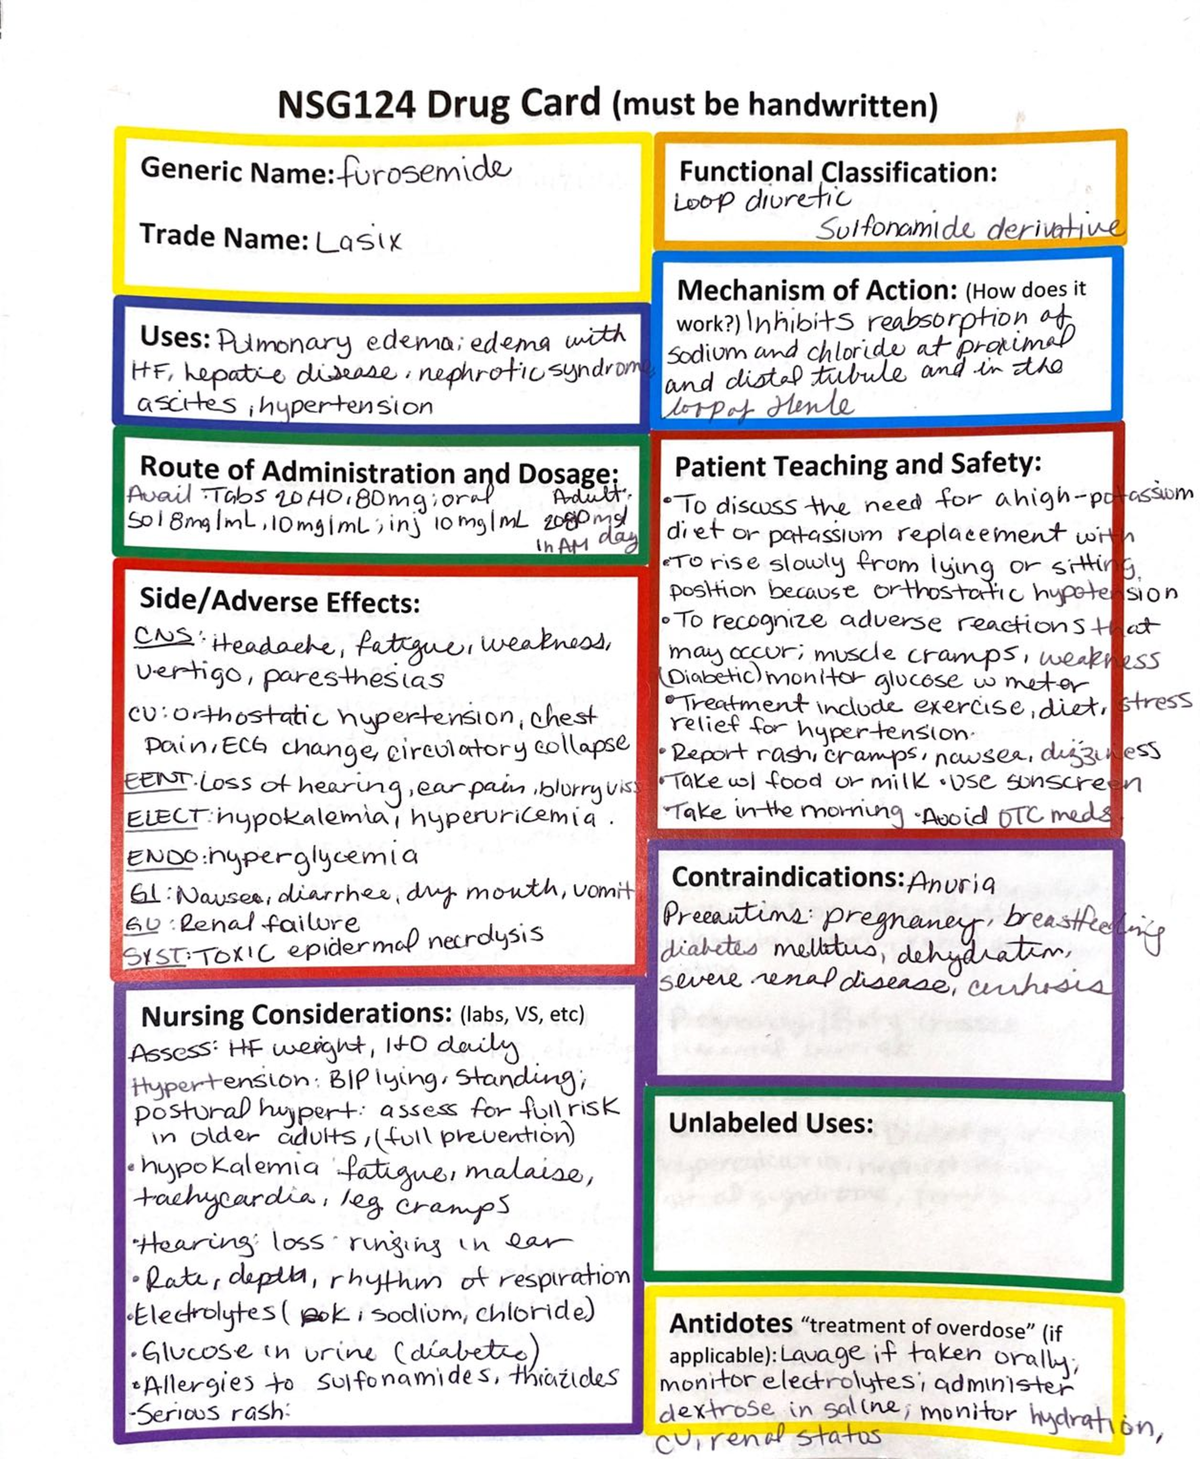 NSG124 Drug Card (must be handwritten)
Generic Name: furosemide
Trade Name: Lasix
Functional Classification:
Loop diuretic
Sulfonamide derivative
Uses: Pulmonary edema; edema with
HF, hepatic disease, nephrotic syndrome
ascites, hypertension
Mechanism of Action: (How does it
work?) Inhibits reabsorption of
sodium and chloride at proximal
and distal tubule and in the
loop of Henle
Route of Administration and Dosage:
Avail: Tabs 20,40,80mg; oral
sol 8mg/mL, 10mg/mL; inj 10mg/mL
Adult:
mg/
in AM day
Patient Teaching and Safety:
• To discuss the need for a high-potassium
diet or patassium replacement with
• To rise slowly from lying or sitting
position because orthostatic hypotension
• To recognize adverse reactions that
may occur; muscle cramps, weakness
(Diabetic) monitor glucose w meter
• Treatment include exercise, diet, stress
relief for hypertension.
• Report rash, cramps, nausea, dizziness
• Take w/ food or milk • Use sunscreen
• Take in the morning • Avoid OTC meds
Side/Adverse Effects:
CNS: Headache, fatigue, weakness,
vertigo, paresthesias
CV: orthostatic hypertension, chest
pain, ECG change, circulatory collapse
EENT: Loss of hearing, ear pain, blurry vis
ELECT: hypokalemia, hyperuricemia.
ENDO: hyperglycemia
GI: Nausea, diarrhee, dry mouth, vomit
GU: Renal failure
SYST: TOXIC epidermal necrolysis
Contraindications: Anuria
Precautions: pregnancy, breastfeeding
diabetes mellitus, dehydration,
severe renal disease, cirrhosis
Nursing Considerations: (labs, VS, etc)
Assess: HF weight, I+O daily
Hypertension: B/P lying, standing;
postural hypert: assess for full risk
in older adults, (full prevention)
• hypokalemia fatigue, malaise,
tachycardia, leg cramps
• Hearing: loss ringing in ear
• Rate, depth, rhythm of respiration
• Electrolytes ( k, sodium, chloride)
• Glucose in urine (diabetic)
• Allergies to sulfonamides, thiazides
• Serious rash:
Unlabeled Uses:
Antidotes "treatment of overdose" (if
applicable): Lavage if taken orally;
monitor electrolytes; administer
dextrose in saline; monitor hydration,
CV, renal status